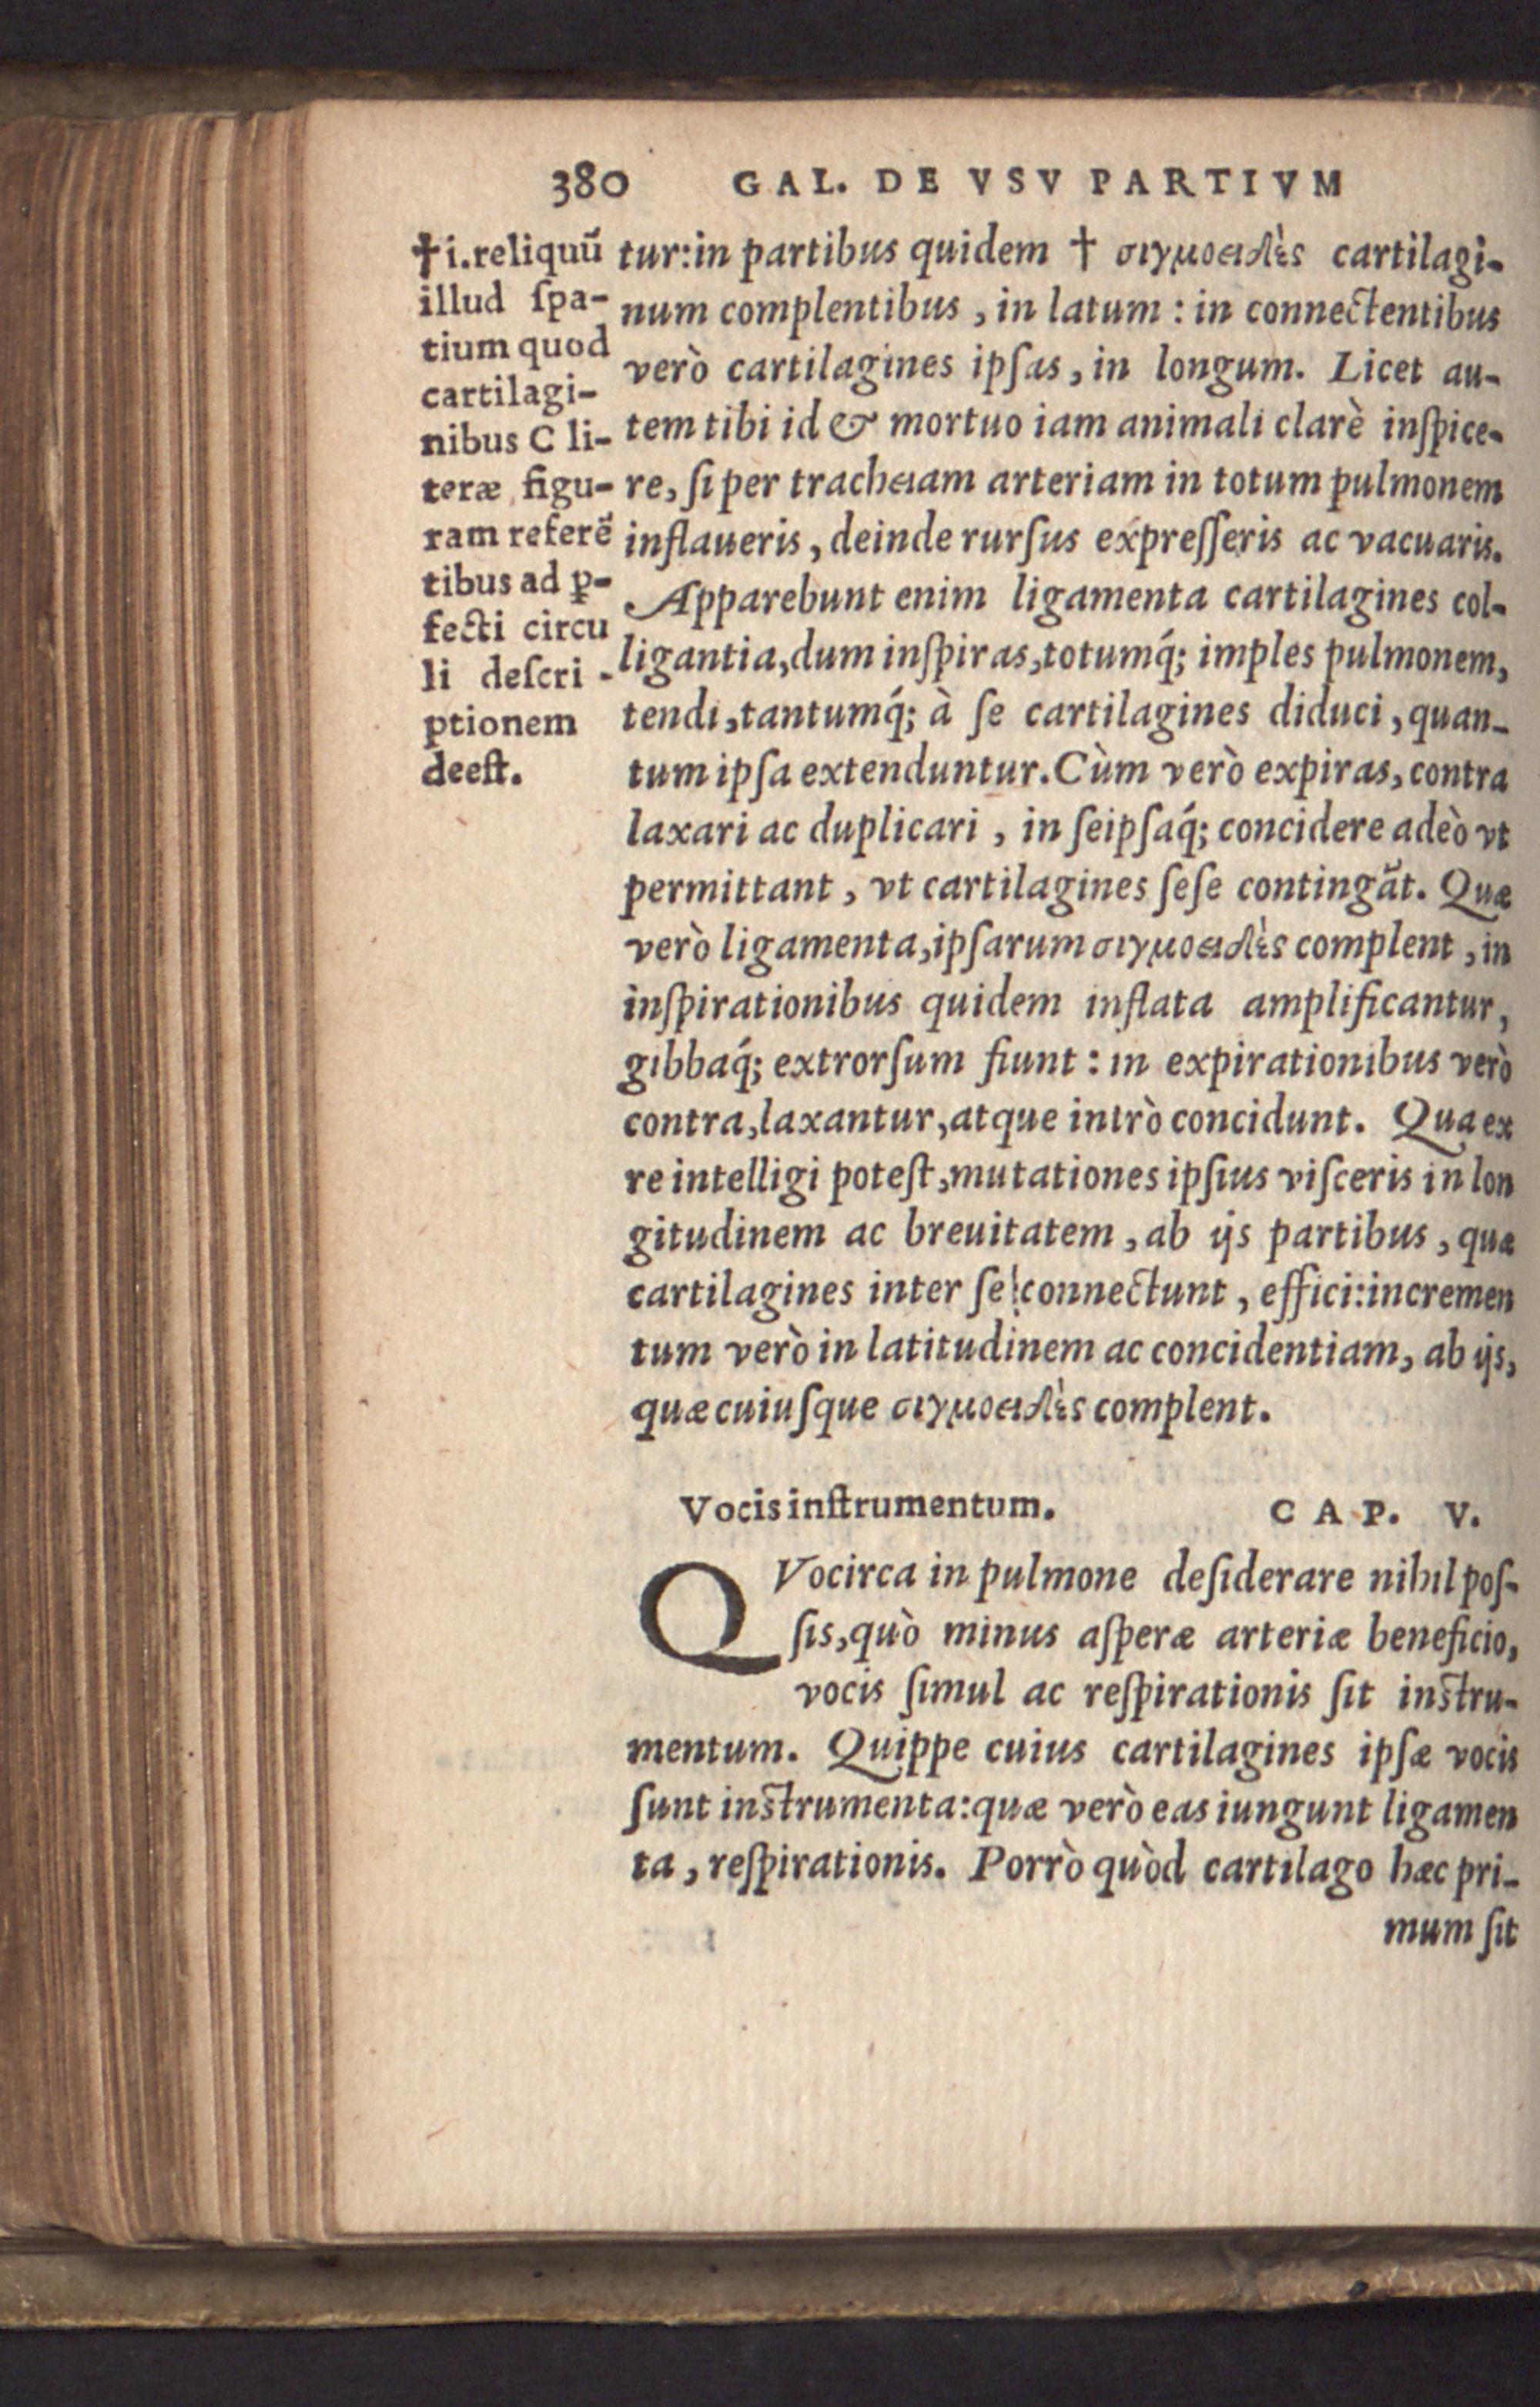 380 GAL. DE VSV PARTIVM
†i.reliquũ
illud ſpa-
tium quod
cartilagi-
nibus C li-
teræ figu-
ram referẽ
tibus ad ꝑ-
fecti circu
li deſcri-
ptionem
deeſt.
tur: in partibus quidem † σιγμοειδὲς cartilagi-
num complentibus, in latum: in connectentibus
verò cartilagines ipſas, in longum. Licet au-
tem tibi id & mortuo iam animali clarè inſpice-
re, ſi per tracheiam arteriam in totum pulmonem
inflaueris, deinde rurſus expreſſeris ac vacuaris.
Apparebunt enim ligamenta cartilagines col-
ligantia, dum inſpiras, totumq́; imples pulmonem,
tendi, tantumq́; à ſe cartilagines diduci, quan-
tum ipſa extenduntur. Cùm verò expiras, contra
laxari ac duplicari, in ſeipſaq́; concidere adeò vt
permittant, vt cartilagines ſeſe contingãt. Quæ
verò ligamenta, ipſarum σιγμοειδὲς complent, in
inſpirationibus quidem inflata amplificantur,
gibbaq́; extrorſum fiunt: in expirationibus verò
contra, laxantur, atque intrò concidunt. Qua ex
re intelligi poteſt, mutationes ipſius viſceris in lon
gitudinem ac breuitatem, ab ijs partibus, quæ
cartilagines inter ſe connectunt, effici: incremen
tum verò in latitudinem ac concidentiam, ab ijs,
quæ cuiuſque σιγμοειδὲς complent.
Vocis inſtrumentum. CAP. V.
QVocirca in pulmone deſiderare nihil poſ-
ſis, quò minus aſperæ arteriæ beneficio,
vocis ſimul ac reſpirationis ſit inſtru-
mentum. Quippe cuius cartilagines ipſæ vocis
ſunt inſtrumenta: quæ verò eas iungunt ligamen
ta, reſpirationis. Porrò quòd cartilago hæc pri-
mum ſit